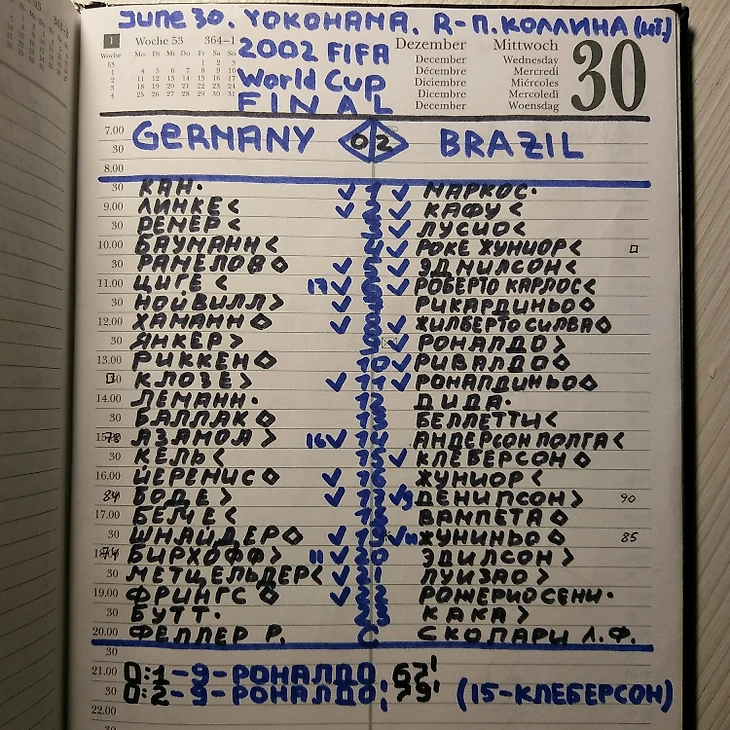 JUNE 30. YOKOHAMA. R-П.КОЛЛИНА (ИТ.)
1 Woche 53 364–1
2002 FIFA
World Cup
FINAL
Dezember Mittwoch
December Wednesday
Décembre Mercredi
Diciembre Miércoles
Dicembre Mercoledì
December Woensdag
30
GERMANY 0 2 BRAZIL
КАН· ✓ 1 ✓ МАРКОС·
ЛИНКЕ < ✓ 2 ✓ КАФУ <
РЕМЕР < 3 ✓ ЛУСИО <
БАУМАНН < 4 ✓ РОКЕ ЖУНИОР <
РАМЕЛОВ ◇ ✓ 5 ✓ ЭДМИЛСОН <
ЦИГЕ < 17 ✓ 6 ✓ РОБЕРТО КАРЛОС <
НОЙВИЛЛ > ✓ 7 РИКАРДИНЬО ◇
ХАМАНН ◇ ✓ 8 ✓ ЖИЛБЕРТО СИЛВА ◇
ЯНКЕР > 9 ✓ РОНАЛДО >
РИККЕН ◇ 10 ✓ РИВАЛДО ◇
КЛОЗЕ > ✓ 11 ✓ РОНАЛДИНЬО ◇
ЛЕМАНН· 12 ДИДА·
БАЛЛАК ◇ 13 БЕЛЛЕТТИ <
78 АЗАМОА > 16 ✓ 14 АНДЕРСОН ПОЛГА <
КЕЛЬ < 15 ✓ КЛЕБЕРСОН ◇
ЙЕРЕМИС ◇ ✓ 16 ЖУНИОР <
84 БОДЕ > ✓ 17 ✓ 9 ДЕНИЛСОН > 90
БЕМЕ < 18 ВАМПЕТА ◇
ШНАЙДЕР ◇ ✓ 19 ✓ 11 ЖУНИНЬО ◇ 85
74 БИРХОФФ > 11 ✓ 20 ЭДИЛСОН >
МЕТЦЕЛЬДЕР < ✓ 21 ЛУИЗАО >
ФРИНГС ◇ ✓ 22 РОЖЕРИО СЕНИ·
БУТТ· 23 КАКА >
ФЕЛЛЕР Р. С СКОЛАРИ Л.Ф.
0:1-9-РОНАЛДО, 67'
0:2-9-РОНАЛДО, 79' (15-КЛЕБЕРСОН)